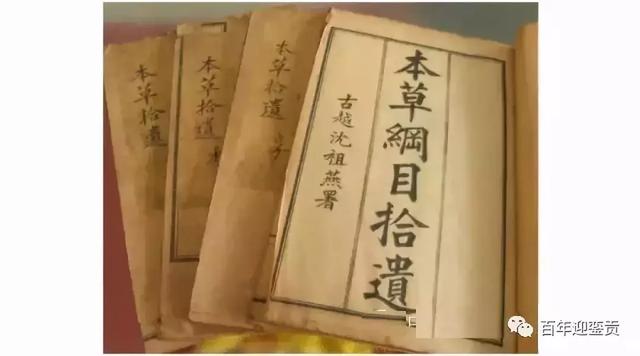 本草綱目拾遺
古越沈祖燕署
本草拾遺
本草拾遺
本草拾遺
百年迎鉴贡